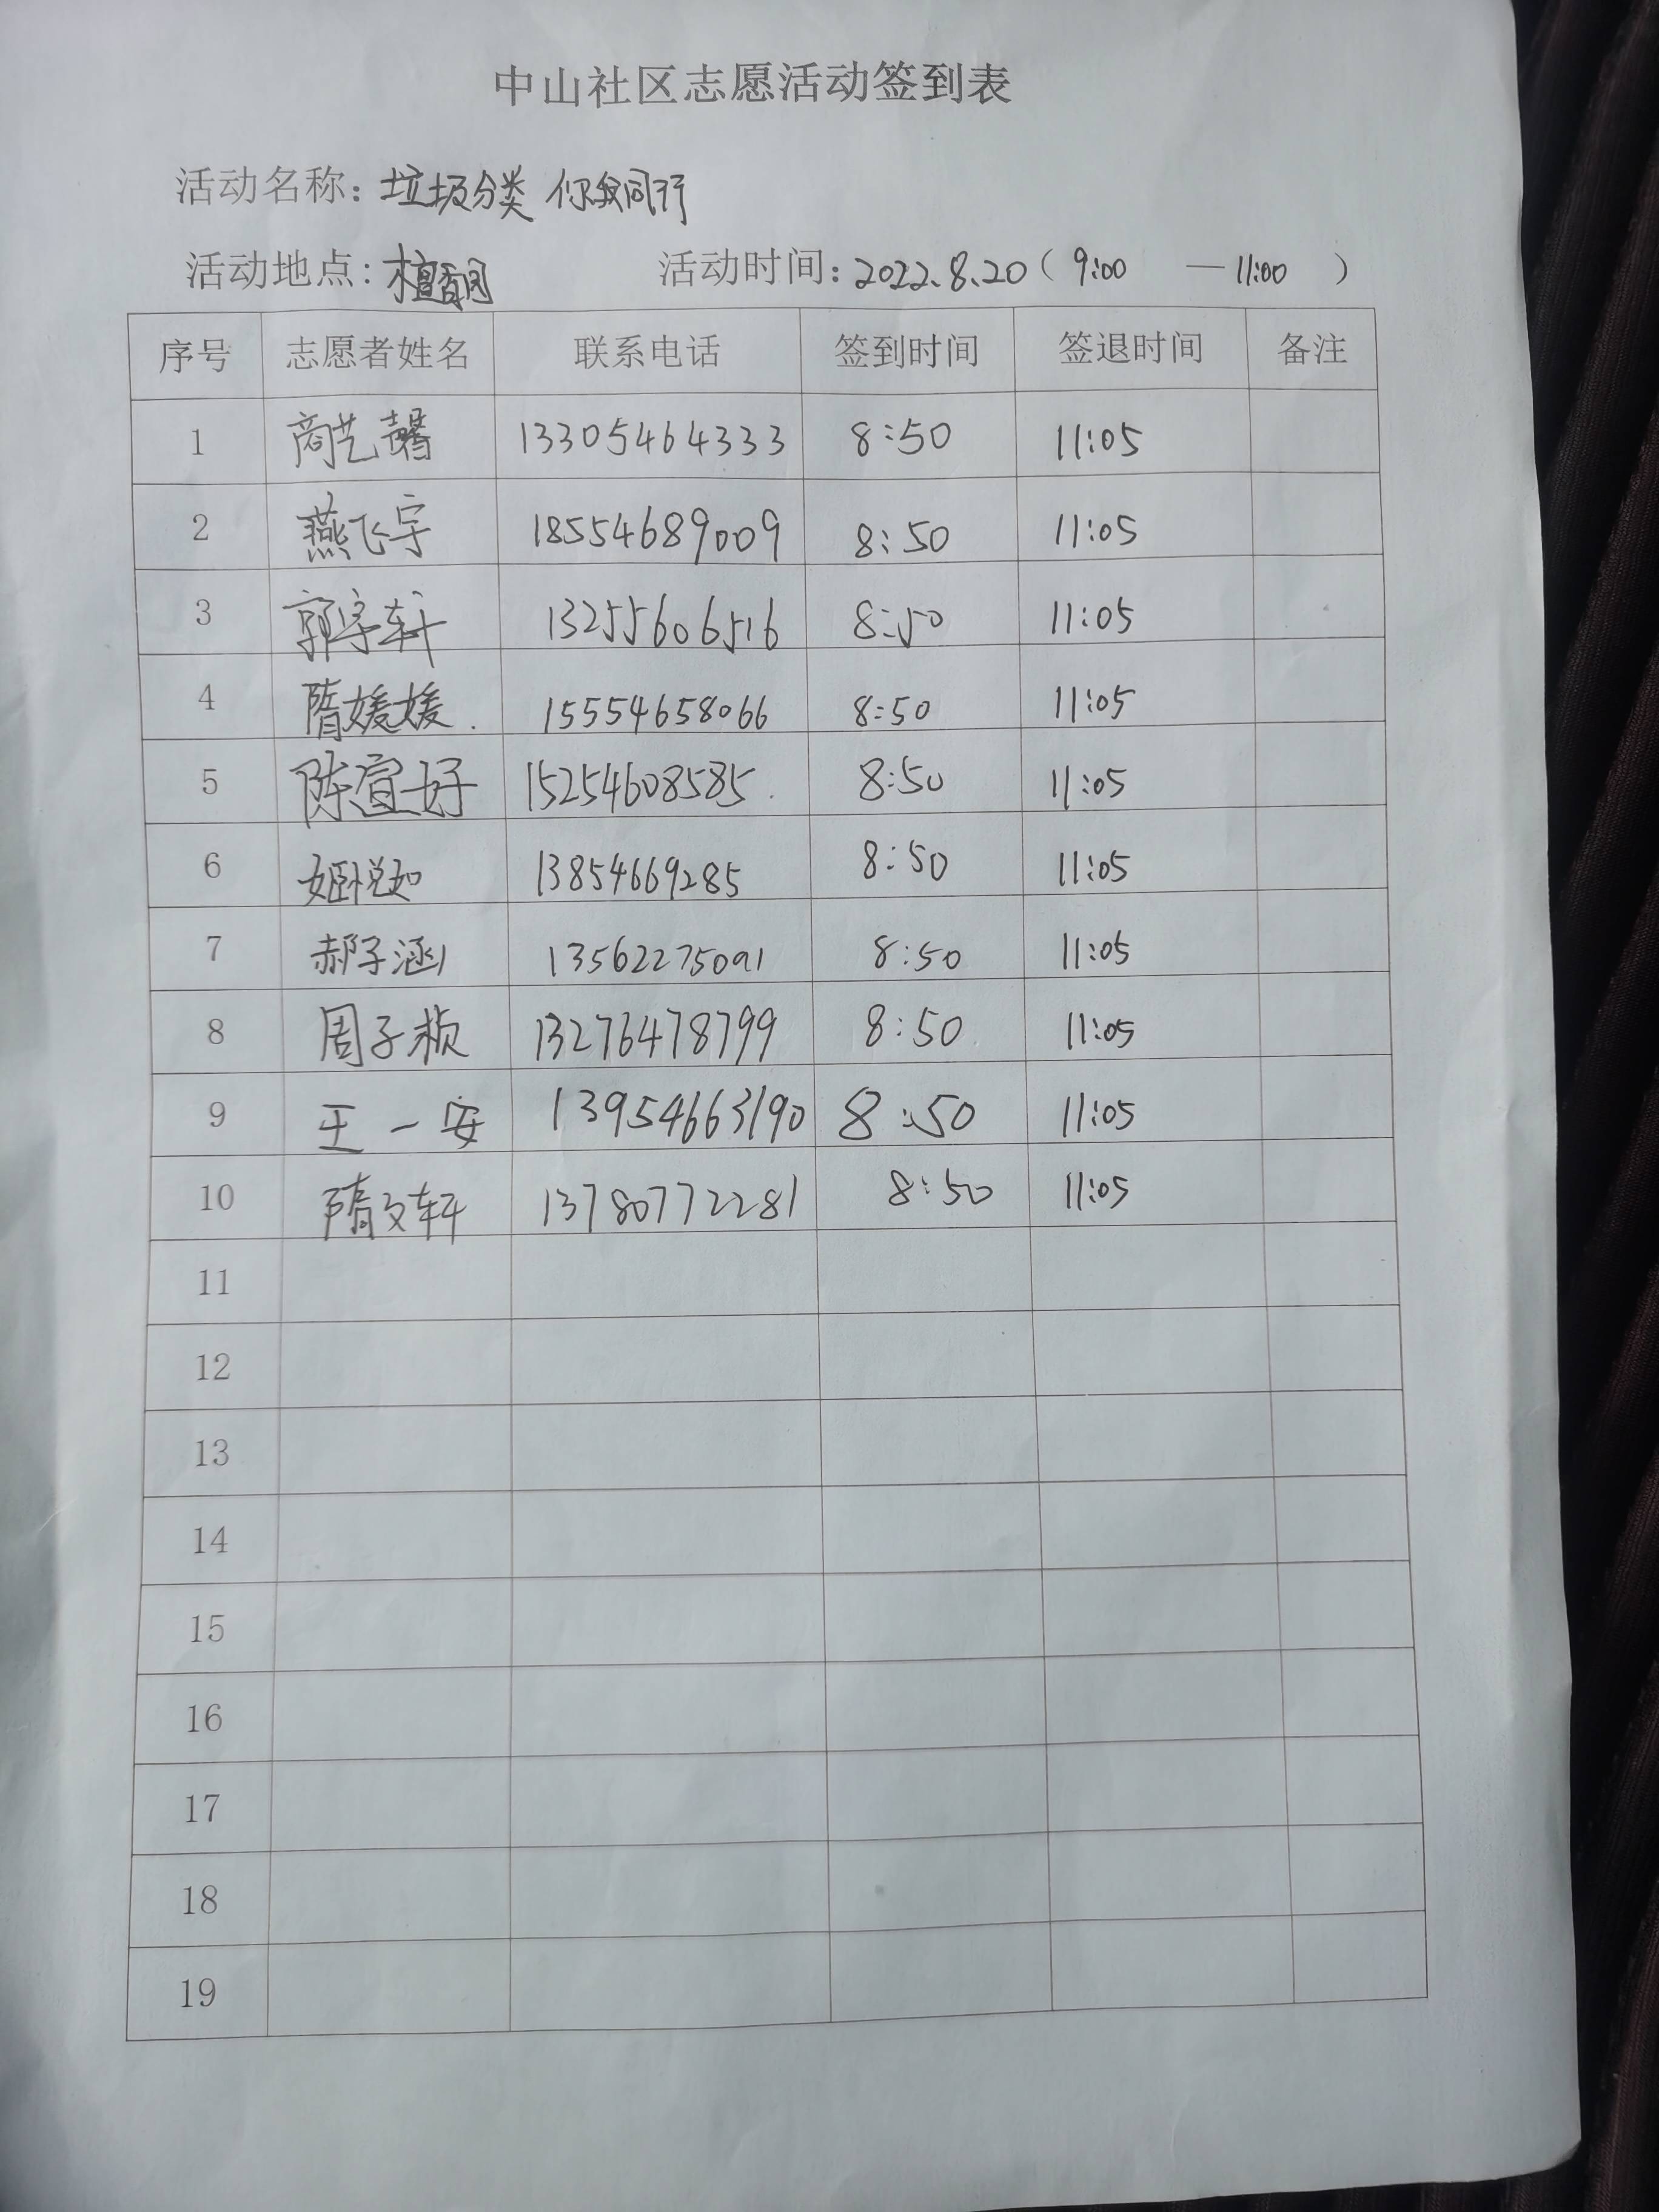 中山社区志愿活动签到表
活动名称：垃圾分类 你我同行
活动地点：檀香园 活动时间：2022.8.20（9:00 —11:00 ）
序号 志愿者姓名 联系电话 签到时间 签退时间 备注
1 商艺馨 13305464333 8:50 11:05
2 燕飞宇 18554689009 8:50 11:05
3 郭宇轩 13255606516 8:50 11:05
4 隋媛媛 15554658066 8:50 11:05
5 陈宣好 15254608585 8:50 11:05
6 姬悦如 13854669285 8:50 11:05
7 郝子涵 13562275091 8:50 11:05
8 周子桢 13276478799 8:50 11:05
9 王一安 13954663190 8:50 11:05
10 隋文轩 13780772281 8:50 11:05
11
12
13
14
15
16
17
18
19